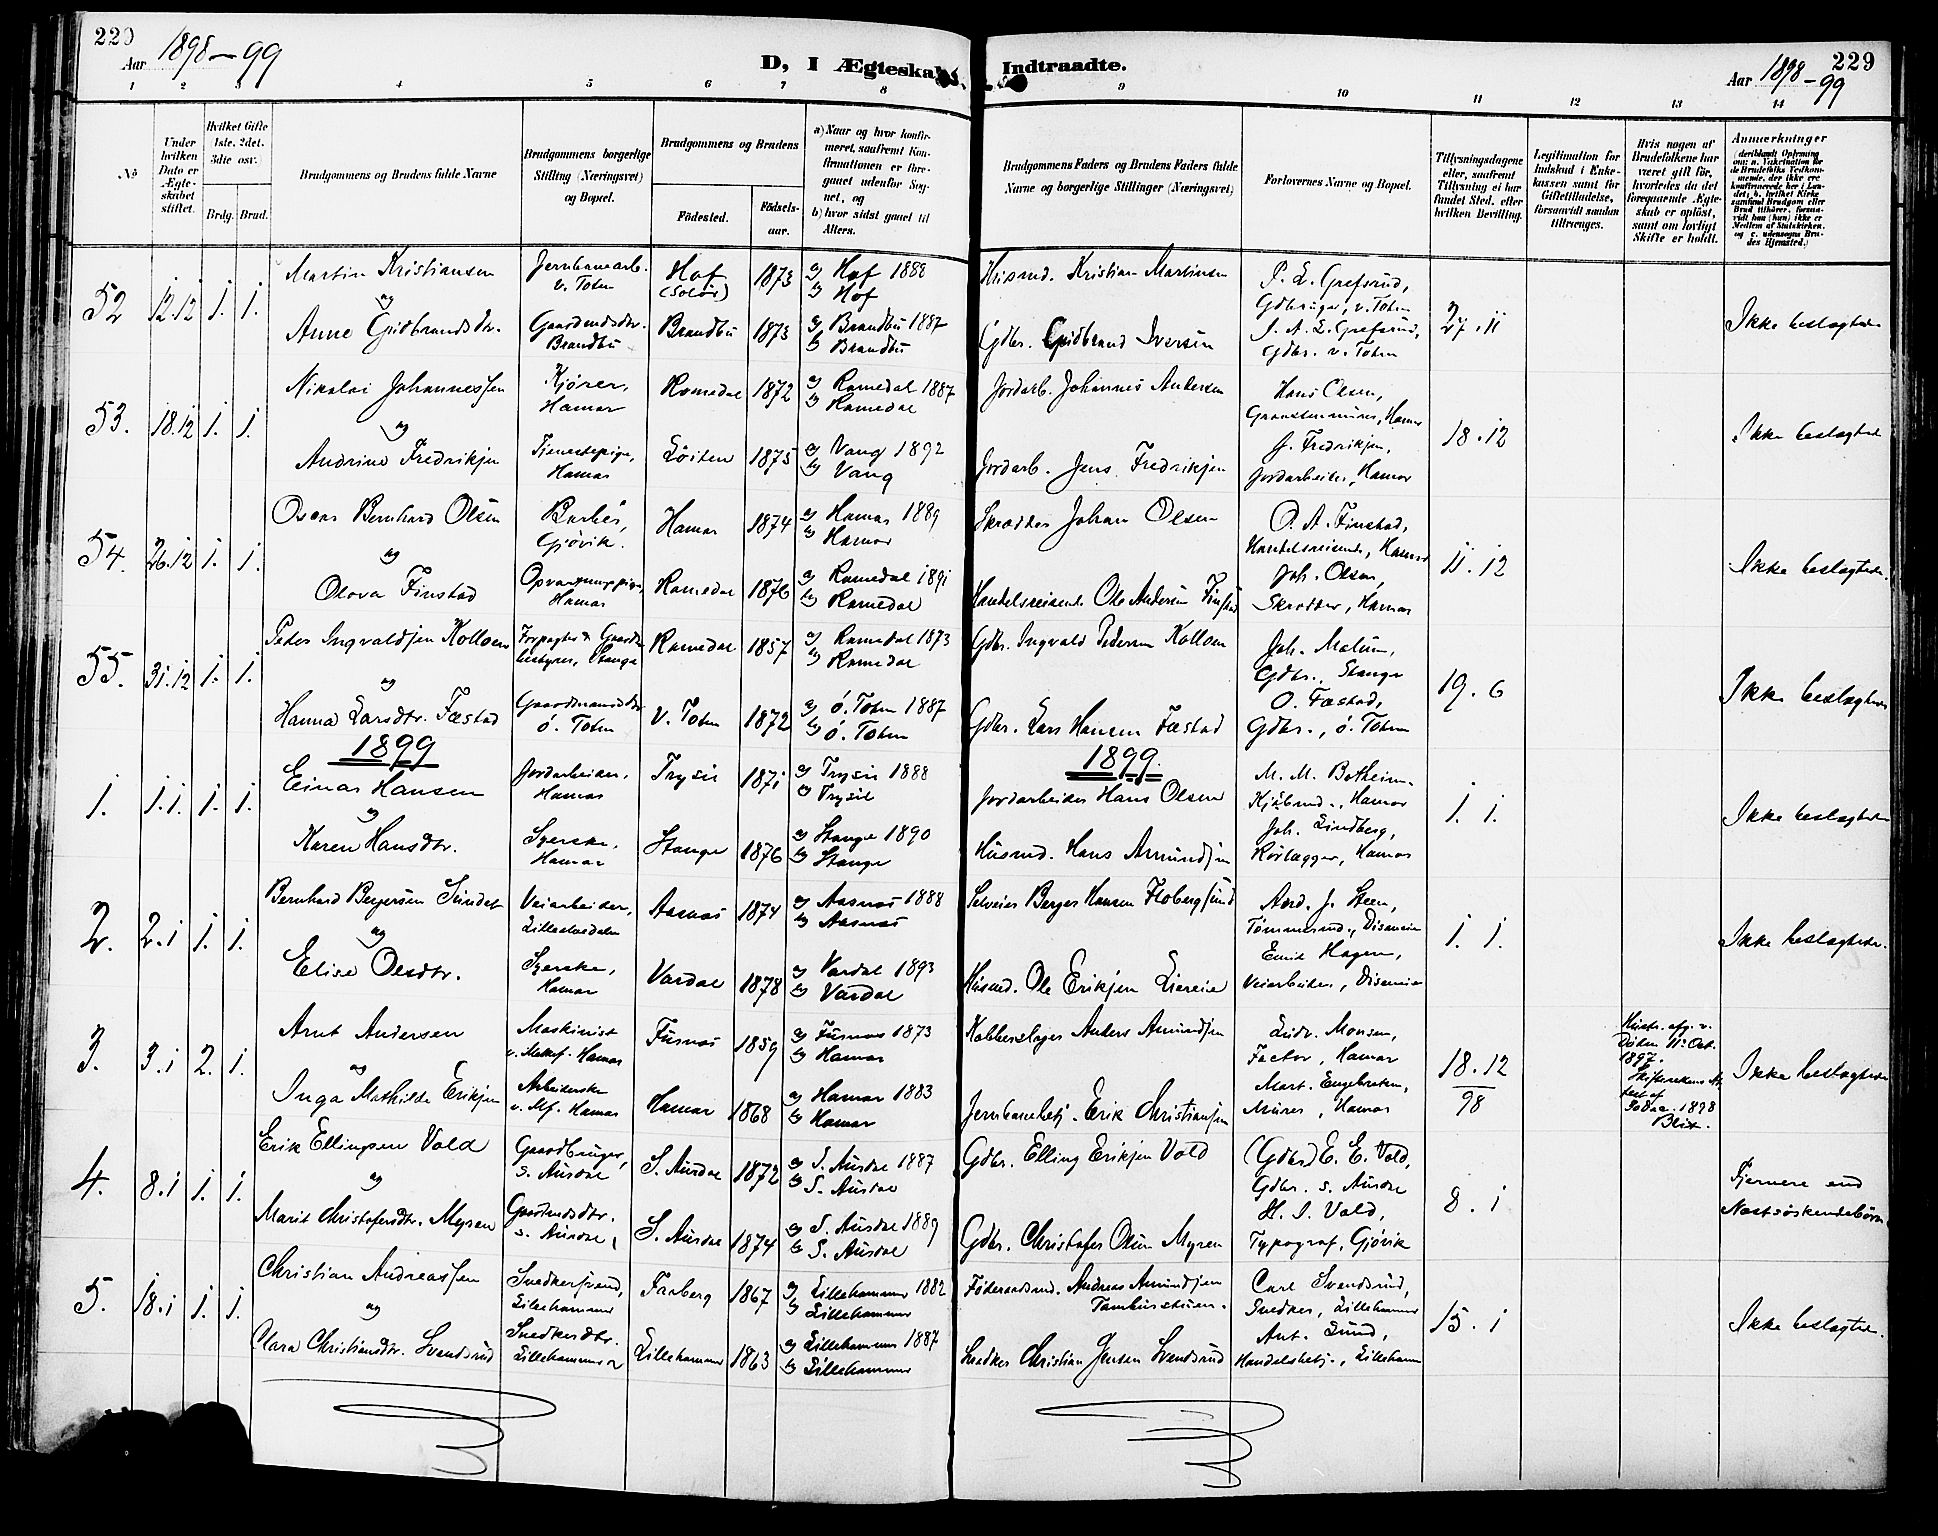 229
Aar 1898-99
D, I Ægteska
Indtraadte.
Aar 1898-99
229
1 2 3 4 5 6 7 8 9 10 11 12 13 14
No
Under hvilken Dato er Ægteskabet stiftet.
Hvilket Gifte 1ste, 2det, 3die osv.
Brdg. Brud.
Brudgommens og Brudens fulde Navne
Brudgommens borgerlige Stilling (Næringsvei) og Bopæl.
Brudgommens og Brudens
Fødested.
Fødselsaar.
a) Naar og hvor konfirmeret, saafremt Konfirmationen er foregaaet udenfor Sognet, og
b) hvor sidst gaaet til Alters.
Brudgommens Faders og Brudens Faders fulde Navne og borgerlige Stillinger (Næringsvei)
Forlovernes Navne og Bopæl.
Tillysningsdagene eller, saafremt Tillysning ei har fundet Sted, efter hvilken Bevilling.
Legitimation for Indskud i Enkekassen samt for Giftetilladelse, forsaavidt saadan tiltrænges.
Hvis nogen af Brudefolkene har været gift før, hvorledes da det foregaaende Ægteskab er opløst, samt om lovligt Skifte er holdt.
Anmærkninger
52 12.12 1. 1.
Martin Kristiansen
og
Anne Gudbrandsdtr.
Jernbanearb. v. Toten
Gaardmdsdtr. Brandbu
Hof (Solør) 1873
Brandbu 1873
a) Hof 1888
b) Hof
a) Brandbu 1887
b) Brandbu
Husmd. Kristian Martinsen
Gdbr. Gudbrand Iversen
P. L. Grefsrud,
Gdbruger, v. Toten
J. A. L. Grefsrud,
Gdbr. v. Toten
27.11
Ikke beslægtede
53. 18.12 1. 1.
Nikolai Johannessen
og
Andrine Fredriksen
Kjører, Hamar
Tjenestepige, Hamar
Romedal 1872
Løiten 1875
a) Romedal 1887
b) Romedal
a) Vang 1892
b) Vang
Jordarb. Johannes Andersen
Jordarb. Jens Fredriksen
Hans Olsen,
Graastensmurer, Hamar
J. Fredriksen,
Jordarbeider, Hamar
18.12
Ikke beslægtede
54. 26.12 1. 1.
Oscar Bernhard Olsen
og
Olova Finstad
Barber, Gjøvik.
Opvartningspige, Hamar
Hamar 1874
Romedal 1876
a) Hamar 1889
b) Hamar
a) Romedal 1891
b) Romedal
Skrædder Johan Olsen
Handelsreisende Ole Andersen Finstad
O. A. Finstad,
Handelsreisende, Hamar
Joh. Olsen,
Skrædder, Hamar
11.12
Ikke beslægtede.
55. 31.12 1. 1.
Peder Ingvaldsen Kolloen
og
Hanna Larsdtr. Fæstad
Forpagter & Gaardsbestyrer, Stange
Gaardmandsdtr. ø. Toten
Romedal 1857
V. Toten 1872
a) Romedal 1873
b) Romedal
a) Ø. Toten 1887
b) Ø. Toten
Gdbr. Ingvald Pedersen Kolloen
Gdbr. Lars Hansen Fæstad
Joh. Melum,
Gdbr., Stange
O. Fæstad,
Gdbr., ø. Toten
19.6
Ikke beslægtede
1899
1899.
1. 1.1. 1. 1.
Einar Hansen
og
Karen Hansdtr.
Jordarbeider, Hamar
Syerske, Hamar
Trysil 1871
Stange 1876
a) Trysil 1888
b) Trysil
a) Stange 1890
b) Stange
Jordarbeider Hans Olsen
Husmd. Hans Amundsen
M. M. Botheim
Kjøbmd., Hamar
Joh. Lindberg,
Rørlægger, Hamar
1.1.
Ikke beslægtede
2. 2.1 1. 1.
Bernhard Bergersen Sundet
og
Elise Olsdtr.
Veiarbeider,
Syerske, Hamar
Aasnæs 1874
Vardal 1878
a) Aasnæs 1888
b) Aasnæs
a) Vardal 1893
b) Vardal
Selveier Berger Hansen Flobergsund
Husmd. Ole Eriksen Liereie
And. J. Steen,
Tømmermd., Diseneie
Emil Hagen,
Veiarbeider, Diseneie
1.1.
Ikke beslægtede.
3. 3.1 2. 1.
Arnt Andersen
og
Inga Mathilde Eriksen
Maskinist v. Hamar
Arbeiderske v. Mf. Hamar
Furnæs 1859
Hamar 1868
a) Furnæs 1873
b) Hamar
a) Hamar 1883
b) Hamar
Kobberslager Anders Amundsen
Jernbanebetj. Erik Christiansen
Ludv. Monsen,
Factor, Hamar
Mart. Engebretsen,
Murer, Hamar
18.12
98
Hustr. afg. v. Døden 11te Oct. 1897.
af 30 Dec. 1898
Blix.
Ikke beslægtede
4. 8.1 1. 1.
Erik Ellingsen Vold
og
Marit Christofersdtr. Myren
Gaardbruger, S. Aurdal
Gaardmdsdtr. S. Aurdal
S. Aurdal 1872
S. Aurdal 1874
a) S. Aurdal 1887
b) S. Aurdal
a) S. Aurdal 1889
b) S. Aurdal
Gdbr. Elling Eriksen Vold
Gdbr. Christofer Olsen Myren
(Gdbr) E. E. Vold,
Gdbr. S. Aurdal
H. I. Vold,
Typograf, Gjøvik
8.1
Fjernere end
Næstsøskendebørn
5. 18.1 1. 1.
Christian Andreassen
og
Clara Christiansdtr. Svendsrud
Snedkersvend, Lillehammer
Snedkerdtr. Lillehammer
Faaberg 1867
Lillehammer 1863
a) Lillehammer 1882
b) Lillehammer
a) Lillehammer 1887
b) Lillehammer
Føderaadsmd. Andreas Amundsen
Snedker Christian Jensen Svendsrud
Carl Svendsrud,
Snedker, Lillehammer
Ant. Lund,
Handelsbetj., Lillehamm
15.1
Ikke beslægtede.